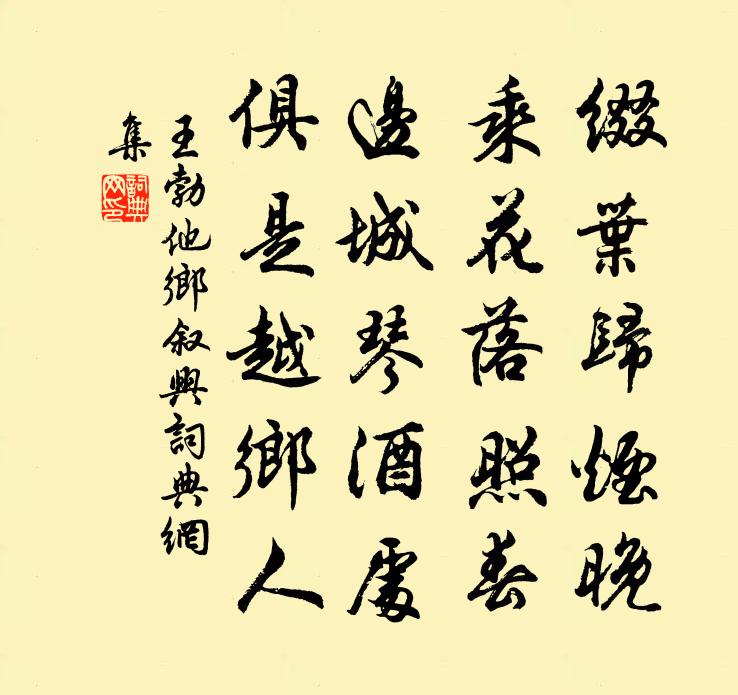 綴葉歸煙晚
乘花落照春
邊城琴酒處
俱是越鄉人
王勃他鄉叙興詞典網
集
詞典
网印